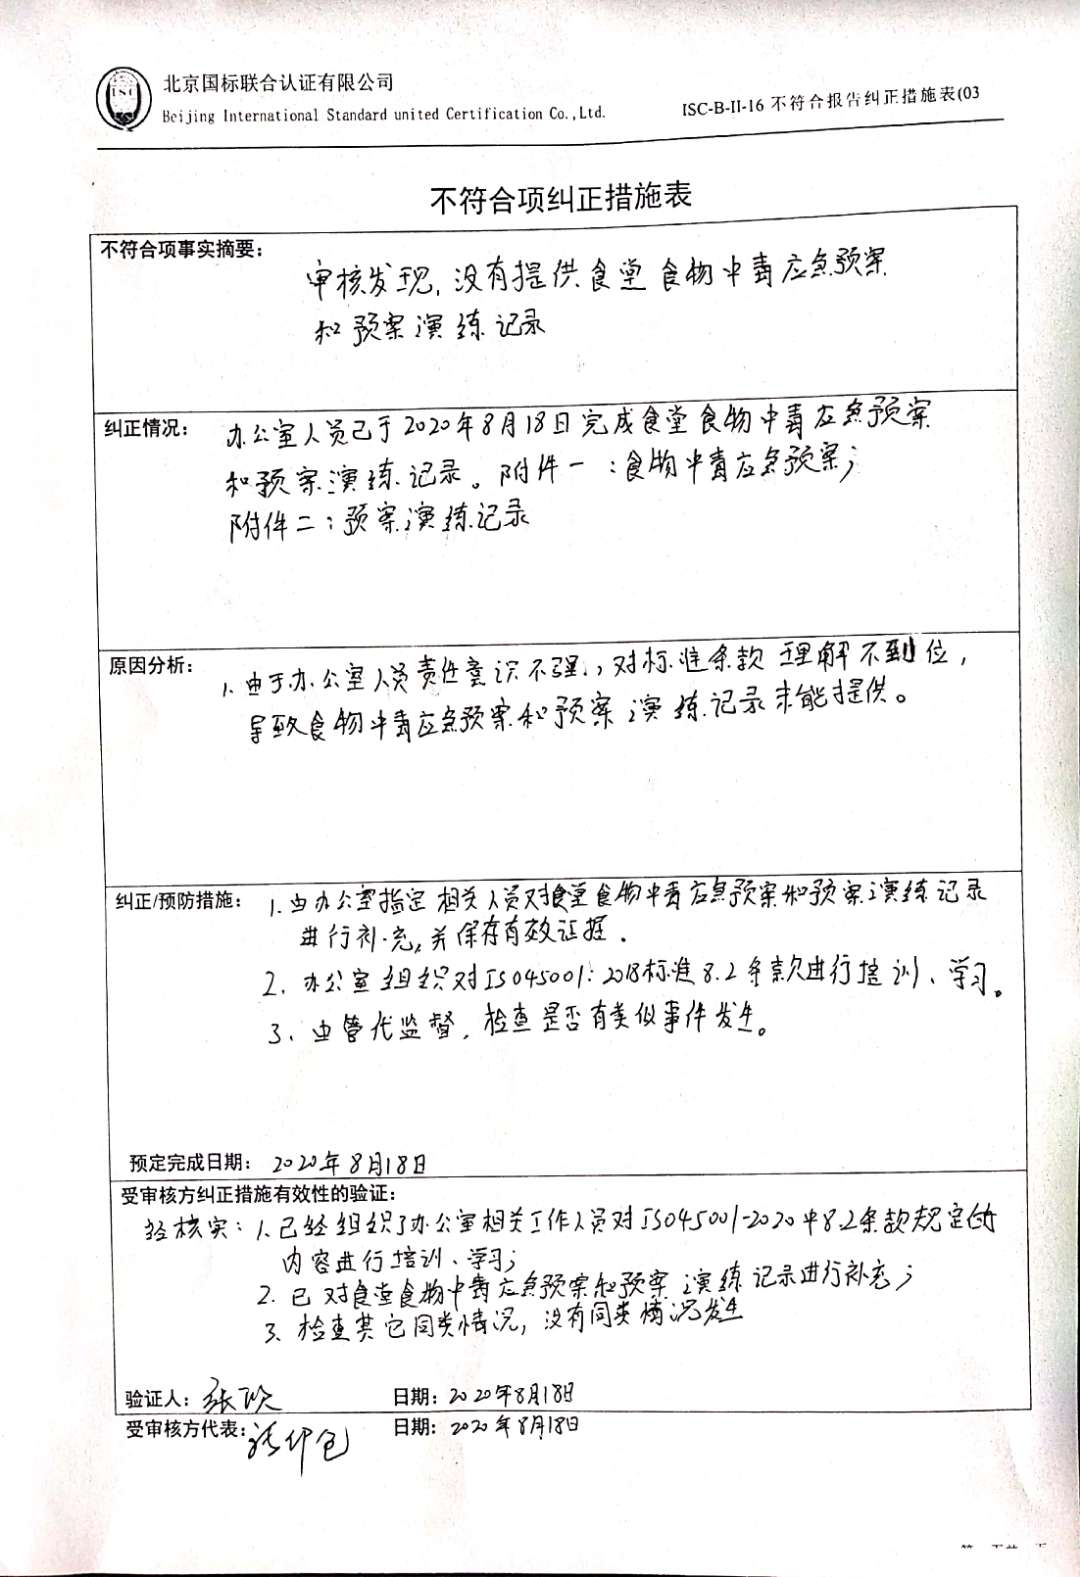 北京国标联合认证有限公司
Beijing International Standard united Certification Co.,Ltd.
ISC-B-II-16 不符合报告纠正措施表(03
ISC
不符合项纠正措施表
不符合项事实摘要：
审核发现，没有提供食堂食物中毒应急预案
和预案演练记录
纠正情况：
办公室人员已于2020年8月18日完成食堂食物中毒应急预案
和预案演练记录。附件一：食物中毒应急预案；
附件二：预案演练记录
原因分析：
1. 由于办公室人员责任意识不强，对标准条款理解不到位，
导致食物中毒应急预案和预案演练记录未能提供。
纠正/预防措施：
1. 由办公室指定相关人员对食堂食物中毒应急预案和预案演练记录
进行补充，并保存有效证据.
2、办公室组织对ISO45001：2018标准8.2条款进行培训、学习。
3、由管代监督，检查是否有类似事件发生。
预定完成日期：2020年8月18日
受审核方纠正措施有效性的验证：
经核实：1、已经组织了办公室相关工作人员对ISO45001-2020中8.2条款规定的
内容进行培训、学习；
2. 已对食堂食物中毒应急预案和预案演练记录进行补充；
3、检查其它同类情况，没有同类情况发生
验证人：张 日期：2020年8月18日
受审核方代表： 日期：2020年8月18日